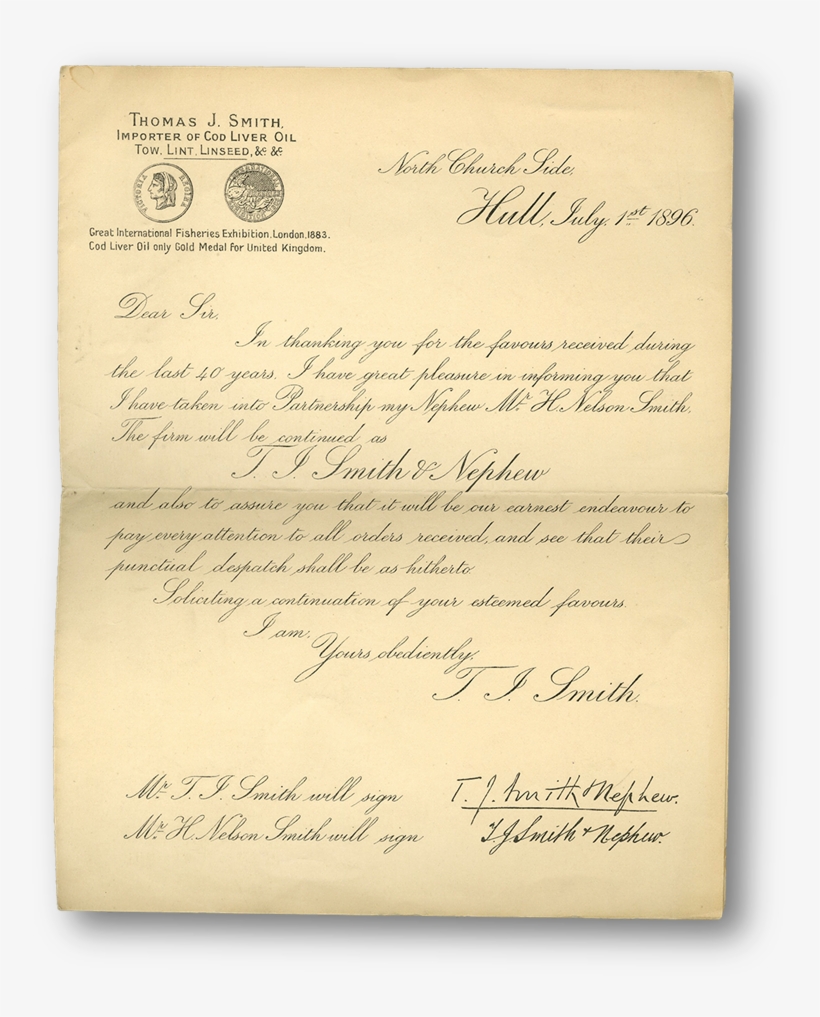 THOMAS J. SMITH,
IMPORTER OF COD LIVER OIL
TOW, LINT, LINSEED, &c &c
VICTORIA REGINA
Great International Fisheries Exhibition, London, 1883.
Cod Liver Oil only Gold Medal for United Kingdom.
North Church Side,
Hull, July, 1st 1896.
Dear Sir,
In thanking you for the favours received during
the last 40 years. I have great pleasure in informing you that
I have taken into Partnership my Nephew Mr. H. Nelson Smith.
The firm will be continued as
T. J. Smith & Nephew
and also to assure you that it will be our earnest endeavour to
pay every attention to all orders received, and see that their
punctual despatch shall be as hitherto.
Soliciting a continuation of your esteemed favours.
I am,
Yours obediently,
T. J. Smith.
Mr. T. J. Smith will sign T. J. Smith & Nephew.
Mr. H. Nelson Smith will sign T J Smith & Nephew.